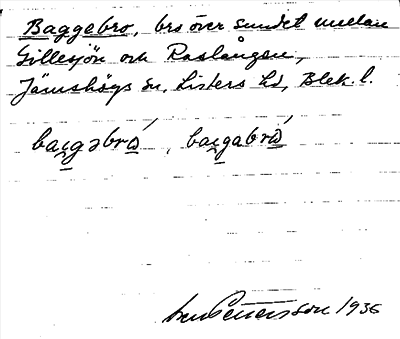 Baggebro, bro över sundet mellan
Gillesjön och Raslången,
Jämshögs sn, Listers hd, Blek. l.
baggabro, baggabro
Pettersson 1936